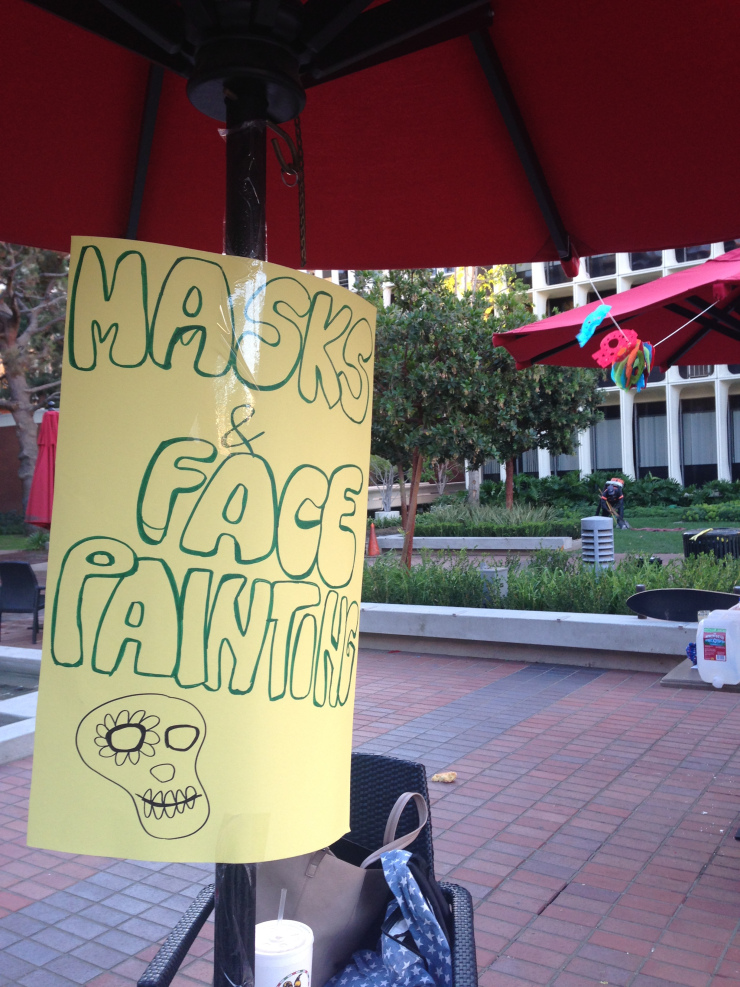 MASKS
&
FACE
PAINTING